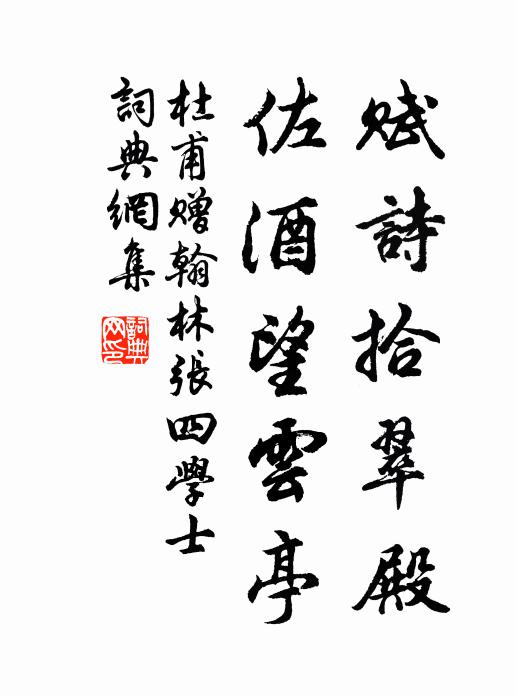 賦詩拾翠殿
佐酒望雲亭
杜甫贈翰林張四學士
詞典網集
詞典网印